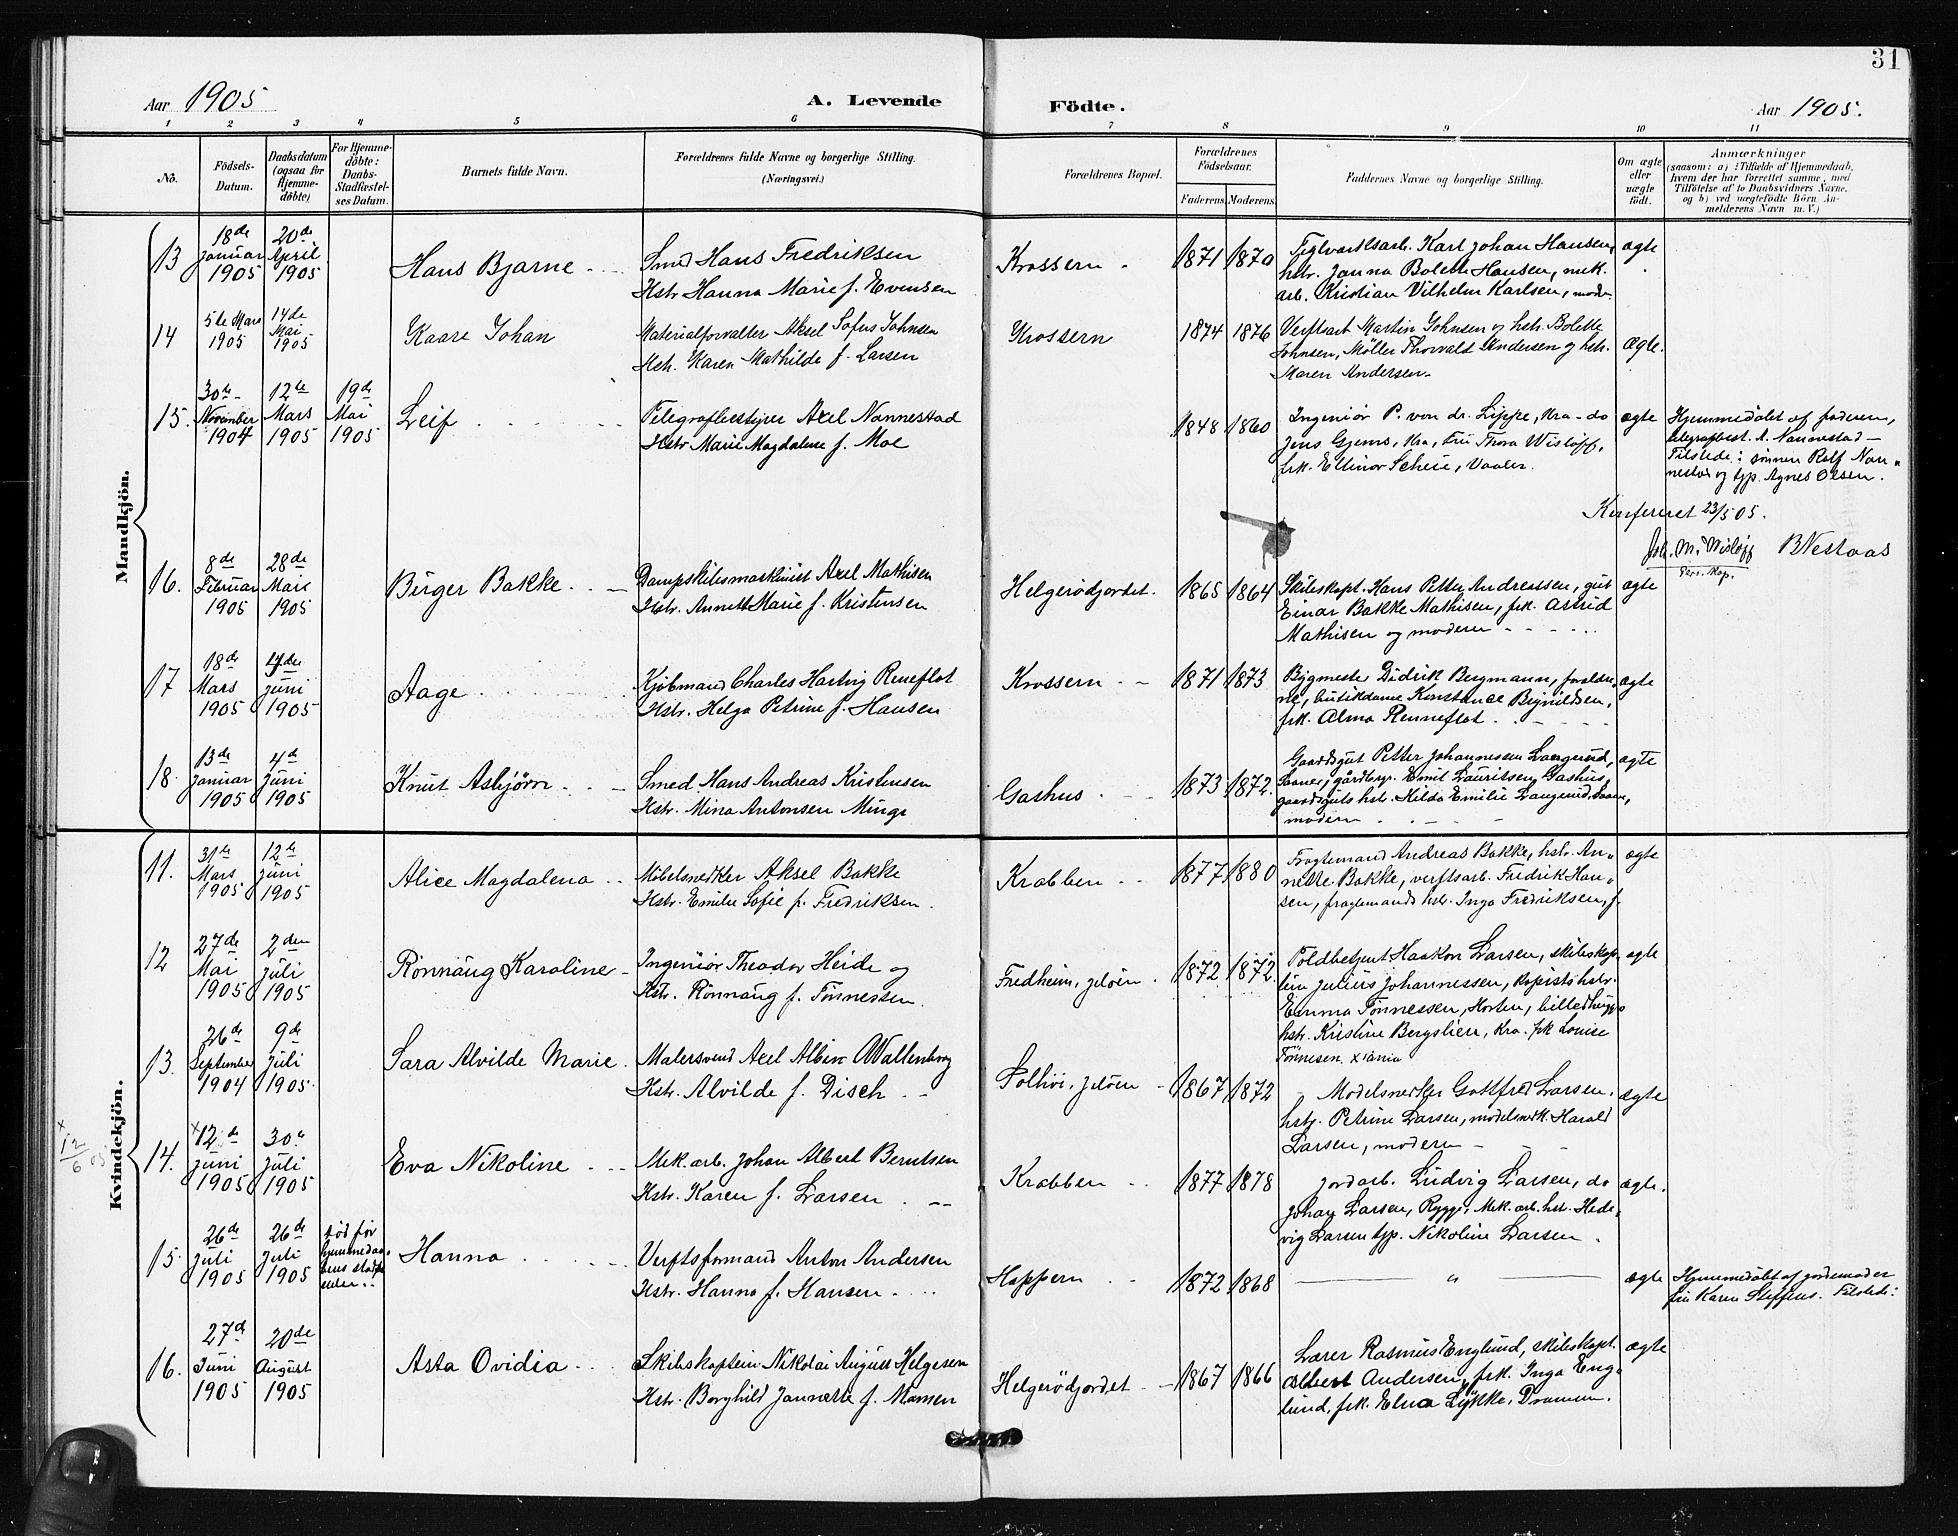 31
Aar 1905
A. Levende
Födte.
Aar 1905.
1 2 3 4 5 6 7 8 9 10 11
No.
Födsels-
Datum.
Daabsdatum
(ogsaa for
Hjemme-
döbte)
For Hjemme-
döbte:
Daabs-
Stadfæstel-
ses Datum.
Barnets fulde Navn.
Forældrenes fulde Navne og borgerlige Stilling.
(Næringsvei.)
Forældrenes Bopæl.
Forældrenes
Födselsaar.
Faderens. Moderens.
Faddernes Navne og borgerlige Stilling.
Om ægte
eller
uægte
födt.
Anmærkninger
(saasom: a) i Tilfælde af Hjemmedaab,
hvem der har forrettet samme, med
Tilföielse af to Daabsvidners Navne,
og b) ved uægtefödte Börn An-
melderens Navn m. V.)
Mandkjön.
13
18de
Januar
1905
20de
April
1905
Hans Bjarne
Smed Hans Fredriksen
Hstr Hanna Marie f. Evensen
Krossern
1871 1870
Teglværksarb. Karl Johan Hansen,
hstr. Janna Bolette Hansen, mek.
arb. Kristian Vilhelm Karlsen, mode-
ægte
14
5te Mars
1905
14de
Mai
1905
Kaare Johan
Materialforvalter Aksel Sofus Johnsen
Hstr. Karen Mathilde f. Larsen
Krossern
1874 1876
Verftsarb Martin Johnsen og hstr. Bolette
Johnsen, Möller Thorvald Andersen og hstr.
Maren Andersen
Ægte.
15.
30te
November
1904
12te
Mars
1905
19de
Mai
1905
Leif
Telegrafbestyrer Axel Nannestad
Hstr Marie Magdalene f. Moe
1848 1860
Ingeniör P. von der Lippe, Kra - do
Jens Gjems, Kra, Fru Thora Wislöff,
frk. Ellinor Scheie, Vaaler.
ægte
Hjemmedöbt af faderen,
telegrafbest. A. Nannestad -
Tilstede: sönnen Rolf Nan-
nestad og tjp. Agnes Olsen.
Konfereret 23/5 05.
Joh. M. Wislöff
Pers. Kap.
16.
8de
Februar
1905
28de
Mai
1905
Birger Bakke
Dampskibsmaskinist Axel Mathisen
Hstr. Annette Marie f. Kristensen
Helgerödjordet.
1865 1864
Skibskapt. Hans Petter Andreassen, gut
Einar Bakke Mathisen, frk. Astrid
Mathisen og moderen
ægte
17
18de
Mars
1905
Juni
1905
Aage
Kjöbmand Charles Hartvig Reneflot
Hstr. Helga Petrine f. Hansen
Krossern
1871 1873
Bygmester Didrik Bergmann, foreldre-
ne, butikdame Konstance Bignildsen,
frk. Alma Renneflot
ægte
18.
13de
Januar
1905
4de
Juni
1905
Knut Asbjörn
Smed Hans Andreas Kristensen
Hstr. Mina Antonsen Minge
Gashus
1873 1872.
Gaardsgut Petter Johannesen Langerud,
Saaner, gårdbrgr. Emil Lauritsen Gashus,
gaardsguts hstr. Hilda Emilie Langerud, Saaner,
modern
ægte
Kvindekjön.
11.
31te
Mars
1905
12te
Juni
1905
Alice Magdalena
Möbelsnedker Aksel Bakke
Hstr. Emilie Sofie f. Fredriksen.
Krabben
1877 1880
Fragtemand Andreas Bakke, hstr. An-
nette Bakke, verftsarb. Fredrik Han-
sen, fragtemands hstr. Inga Fredriksen, f.
ægte
12
27de
Mai
1905
2den
Juli
1905
Rönnaug Karoline
Ingeniör Theodor Heide og
Hstr. Rönnaug f. Tönnessen.
Fredheim, Jelöen.
1872 1872.
Toldbetjent Haakon Larsen, skibskap-
tein Julius Johannessen, kopists hstr.
Emma Tönnessen, Horten, billedhugger
hstr. Kristine Bergslien, Kra. frk Louise
Tönnesen. Xiania
ægte
13.
26de
September
1904
9de
Juli
1905.
Sara Alvilde Marie.
Malersvend Axel Albin Wallenborg
Hstr. Alvilde f. Disch
Solhöi, Jelöen
1867 1872
Modelsnedker Gottfred Larsen,
hstr. Petrine Larsen, modelsnedk. Harald
Larsen, modern
ægte
x 12/6 05
14.
x12.de
Juni
1905
30te
Juli
1905
Eva Nikoline
Mek. arb. Johan Albert Berntsen
Hstr. Karen f. Larsen
Krabben
1877 1878
Jordarb. Ludvig Larsen, do
Johan Larsen, Rygge, Mek. arb. hstr. Hede-
vig Larsen tjp. Nikoline Larsen.
ægte.
15.
26de
Juli
1905
26de
Juli
1905
död för
hjemmedaa-
bens stadfæ-
stelse
Hanna
Verftsformand Anton Andersen
Hstr. Hanna f. Hansen
Hoppern
1872 1868
"
ægte
Hjemmedöbt af jordemoder
fru Karen Steffens. Tilstede:
16.
27de
Juni
1905
20de
August
1905
Asta Ovidia
Skibskaptein Nikolai August Helgesen
Hstr. Borghild Jannette f. Mamen
Helgerödjordet
1867 1866
Lærer Rasmus Englund, skibskapt.
Albert Andersen, frk. Inga Eng-
lund, frk. Elna Lykke, Dramen.
ægte